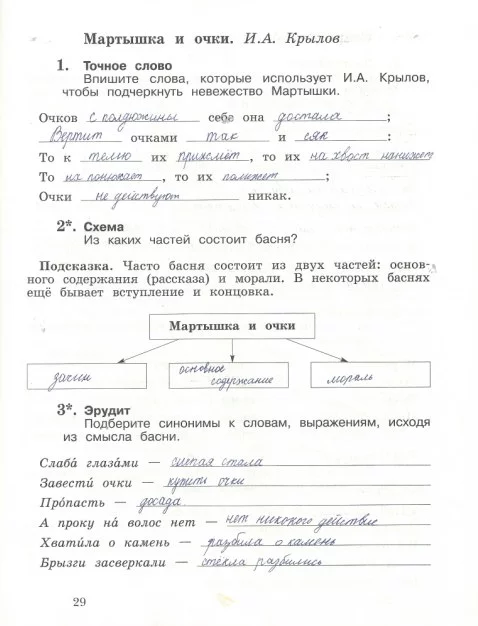 Мартышка и очки. И.А. Крылов
1. Точное слово
Впишите слова, которые использует И.А. Крылов,
чтобы подчеркнуть невежество Мартышки.
Очков с полдюжины себе она достала ;
Вертит очками так и сяк :
То к темю их прижмёт , то их на хвост нанижет
То их понюхает , то их полижет ;
Очки не действуют никак.
2*. Схема
Из каких частей состоит басня?
Подсказка. Часто басня состоит из двух частей: основ-
ного содержания (рассказа) и морали. В некоторых баснях
ещё бывает вступление и концовка.
Мартышка и очки
зачин
основное
содержание
мораль
3*. Эрудит
Подберите синонимы к словам, выражениям, исходя
из смысла басни.
Слабá глазáми — слепая стала
Завестú очки — купить очки
Прóпасть — досада
А проку нá волос нет — нет никакого действие
Хватúла о камень — разбила о камень
Брызги засверкали — стёкла разбились
29